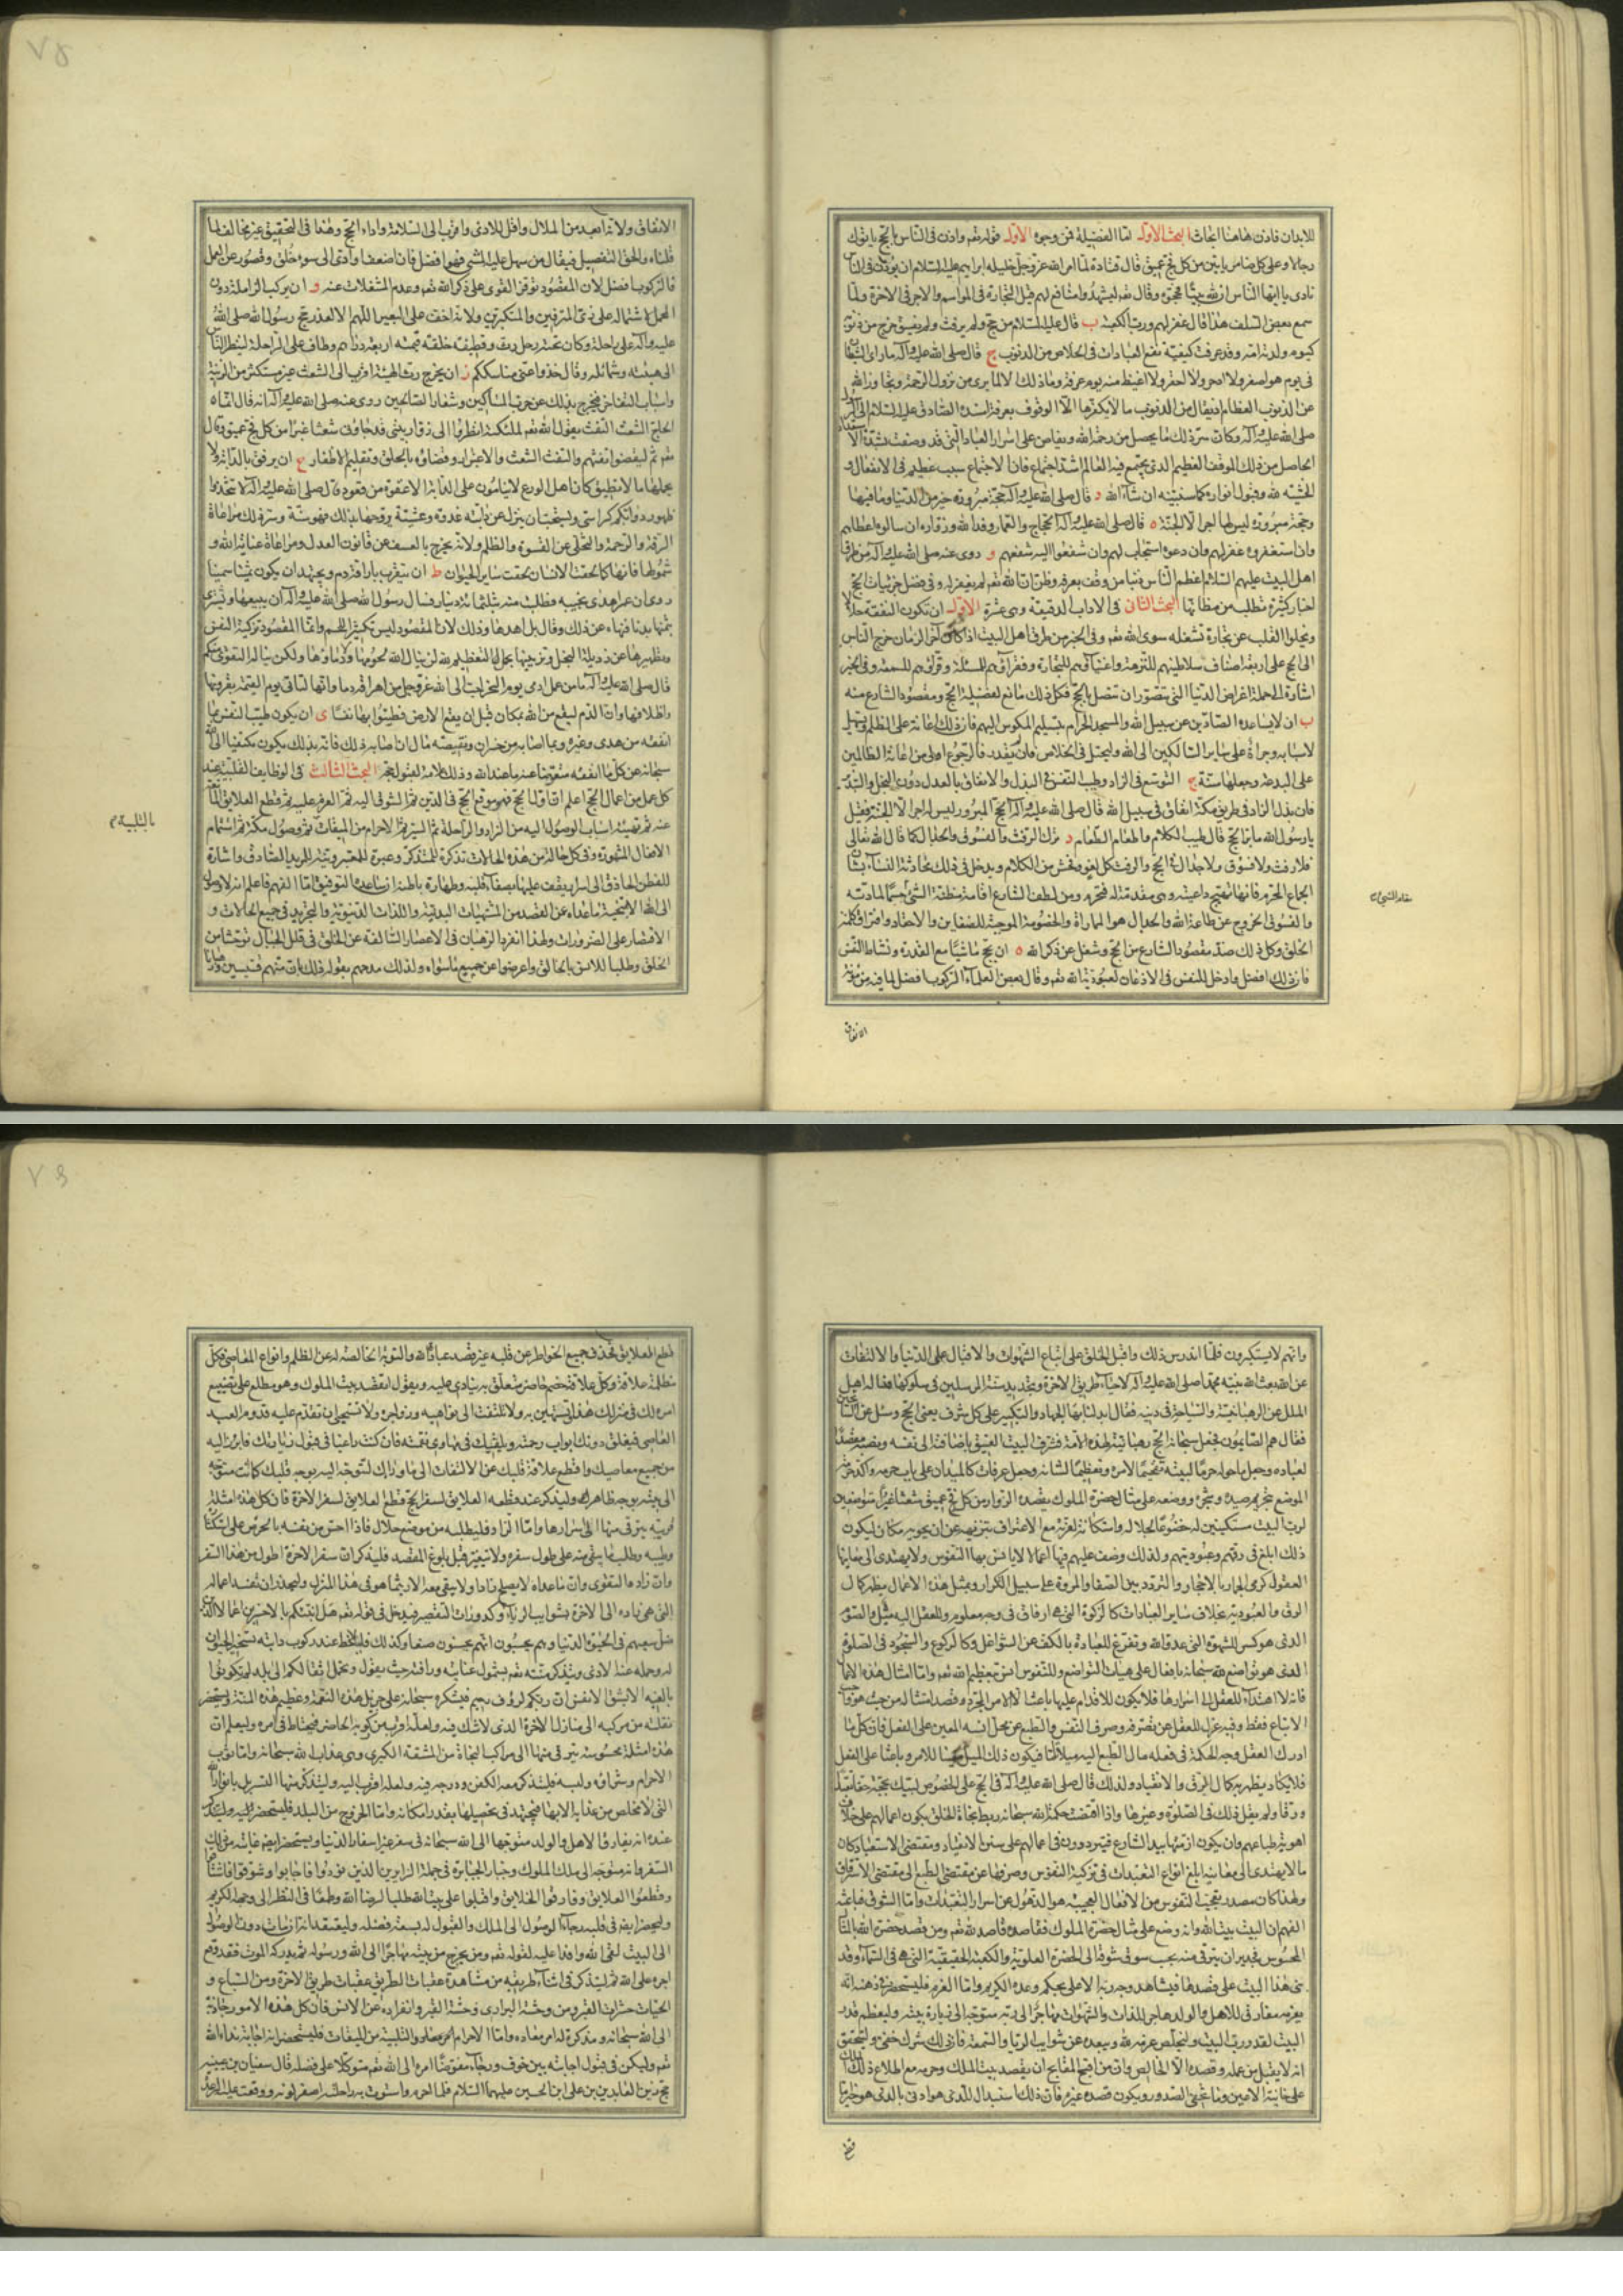 للابدان فاذن هاهنا ابحاث البحث الاول اما الفضيلة فمن وجوه الاول قوله تعم واذن فى الناس بالحج ياتوك
رجالا وعلى كل ضامر ياتين من كل فج عميق قال قتادة لما امر الله عز وجل خليله ابراهيم عليه السلام ان يؤذن فى الناس
نادى يا ايها الناس ان لله بيتا فحجوه وقال تعم ليشهدوا منافع لهم قيل التجارة فى المواسم والاجر فى الاخرة ولما
سمع بعض السلف هذا قال غفر لهم ورب الكعبة ب قال عليه السلام من حج ولم يرفث ولم يفسق خرج من ذنوبه
كيوم ولدته امه وقد عرفت كيفية نفع العبادات فى الخلاص من الذنوب ج قال صلى الله عليه وآله ما راى الشيطان
فى يوم هو اصغر ولا ادحر ولا احقر ولا اغيظ منه يوم عرفة وما ذلك الا لما يرى من نزول الرحمة وتجاوز الله
عن الذنوب العظام اذ يقال من الذنوب ما لا يكفرها الا الوقوف بعرفة اسنده الصادق عليه السلام الى الرسول
صلى الله عليه وآله وكان سر ذلك ما يحصل من رحمة الله ويفاض على اسرار العباد التى قد وصفت بشدة الاستعداد
الحاصل من ذلك الموقف العظيم الذى يجتمع فيه العالم اشد اجتماع فان الاجتماع سبب عظيم فى الانفعال و
الخشية لله وقبول انواره كما سنبينه ان شاء الله د قال صلى الله عليه وآله حجة مبرورة خير من الدنيا وما فيها
وحجة مبرورة ليس لها اجر الا الجنة ه قال صلى الله عليه وآله الحجاج والعمار وفد الله وزواره ان سالوه اعطاهم
وان استغفروه غفر لهم وان دعوه استجاب لهم وان شفعوا اليه شفعهم و روى عنه صلى الله عليه وآله من طريق
اهل البيت عليهم السلام اعظم الناس ذنبا من وقف بعرفة وظن ان الله تعم لم يغفر له وفى فضل جزئيات الحج
اخبار كثيرة تطلب من مظانها البحث الثانى فى الاداب الدقيقة وهى عشرة الاول ان تكون النفقة حلالا
ويخلوا القلب عن تجارة تشغله سوى الله تعم وفى الخبر من طرق اهل البيت اذا كان آخر الزمان خرج الناس
الى الحج على اربعة اصناف سلاطينهم للنزهة واغنياؤهم للتجارة وفقراؤهم للمسئلة وقراؤهم للسمعة وفى الخبر
اشارة الى جملة اغراض الدنيا التى تتصور ان تتصل بالحج فكل ذلك مانع لفضيلة الحج ومقصود الشارع منه
ب ان لا يساعد الصادين عن سبيل الله والمسجد الحرام بتسليم المكوس اليهم فان ذلك اعانة على الظلم وتسهيل
لاسبابه وجراة على ساير السالكين الى الله وليحتل فى الخلاص فان لم يقدر فالرجوع اولى من اعانة الظالمين
على البدعة وجعلها سنة ج التوسع فى الزاد وطيب النفس فى البذل والانفاق بالعدل دون البخل والتبذير
فان بذل الزاد فى طريق مكة انفاق فى سبيل الله قال صلى الله عليه وآله الحج المبرور ليس له اجر الا الجنة فقيل
يا رسول الله ما بر الحج قال طيب الكلام واطعام الطعام د ترك الرفث والفسوق والجدال كما قال الله تعالى
فلا رفث ولا فسوق ولا جدال فى الحج والرفث كل لغو وفحش من الكلام ويدخل فى ذلك محادثة النساء بشان
الجماع المحرم فانها تهيج داعيته وهى مقدمة له فتحرم ومن لطف الشارع اقامة مظنة الشئ مقام الشئ حسما لمادته
والفسوق الخروج عن طاعة الله والجدال هو المماراة والخصومة الموجبة للضغاين والاحقاد وافتراق كلمة
الخلق وكل ذلك ضد مقصود الشارع من الحج وشغل عن ذكر الله ه ان يحج ماشيا مع القدرة ونشاط النفس
فان ذلك افضل وادخل للنفس فى الاذعان لعبودية الله تعم وقال بعض العلماء الركوب افضل لما فيه من مؤنة
الانفاق
مقام الشئ
٧٥
الانفاق ولانه ابعد من الملال واقل للاذى واقرب الى السلامة واداء الحج وهذا فى التحقيق غير مخالف لما
قلناه والحق التفصيل فيقال من سهل عليه المشى فهو افضل فان اضعف وادى الى سوء خلق وقصور عن العمل
فالركوب افضل لان المقصود توفر القوى على ذكر الله تعم وعدم المشغلات عنه و ان يركب الزاملة دون
المحمل لاشتماله على زى المترفين والمتكبرين ولانه اخف على البعير اللهم الا لعذر حج رسول الله صلى الله
عليه وآله على راحلة وكان تحته رحل رث وقطيفة خلقة قيمته اربعة دراهم وطاف على الراحلة لينظر الناس
الى هيئته وشمائله وقال خذوا عنى مناسككم ز ان يخرج رث الهيئة اقرب الى الشعث غير مستكثر من الزينة
واسباب التفاخر فيخرج بذلك عن حزب السالكين وشعار الصالحين روى عنه صلى الله عليه وآله انه قال انما
الحاج الشعث التفث يقول الله تعم لملئكته انظروا الى زوار بيتى قد جاؤنى شعثا غبرا من كل فج عميق وقال
تعم ثم ليقضوا تفثهم والتفث الشعث والاغبرار وقضاؤه بالحلق وتقليم الاظفار ح ان يرفق بالدابة ولا
يحملها ما لا تطيق كان اهل الورع لا ينامون على الدابة الا غفوة من قعود قال صلى الله عليه وآله لا تتخذوا
ظهور دوابكم كراسى ويستحب ان ينزل عن دابته غدوة وعشية يروحها بذلك فهو سنة وسر ذلك مراعاة
الرقة والرحمة والتخلى عن القسوة والظلم ولانه يخرج بالعسف عن قانون العدل ومراعاة عناية الله و
شمولها فانها كما لحقت الانسان لحقت ساير الحيوان ط ان يتقرب باراقة دم ويجتهد ان يكون ثمينا سمينا
روى ان عمر اهدى نجيبة فطلبت منه بثلثمائة دينار فسال رسول الله صلى الله عليه وآله ان يبيعها ويشترى
بثمنها بدنا فنهاه عن ذلك وقال بل اهدها وذلك لان المقصود ليس تكثير اللحم وانما المقصود تزكية النفس
وتطهيرها عن رذيلة البخل وتزيينها بجمال التعظيم لله لن ينال الله لحومها ولا دماؤها ولكن يناله التقوى منكم
قال صلى الله عليه وآله ما من عمل ادمى يوم النحر احب الى الله عز وجل من اهراقه دما وانها لتاتى يوم القيمة بقرونها
واظلافها وان الدم ليقع من الله بمكان قبل ان يقع الارض فطيبوا بها نفسا ى ان يكون طيب النفس بما
انفقه من هدى وغيره وبما اصابه من خسران ونقيصة مال ان اصابه ذلك فانه بذلك يكون مكتفيا الى الله
سبحانه عن كل ما انفقه متعوضا عنه ما عند الله وذلك علامة لقبول حجه البحث الثالث فى الوظايف القلبية عند
كل عمل من اعمال الحج اعلم ان اول الحج فهو موقع الحج فى الدين ثم الشوق اليه ثم العزم عليه ثم قطع العلايق المانعة
عنه ثم تهيئة اسباب الوصول اليه من الزاد والراحلة ثم السير ثم الاحرام من الميقات بالتلبية ثم وصول مكة ثم استتمام
الافعال المشهورة وفى كل حالة من هذه الحالات تذكرة للمتذكر وعبرة للمعتبر وتنبيه للمريد الصادق واشارة
للفطن الحاذق الى اسرار يقف عليها بصفاء قلبه وطهارة باطنه ان ساعده التوفيق اما الفهم فاعلم انه لا وصول
الى الله الا بتنحية ما عداه عن القصد من المشتهيات البدنية واللذات الدنيوية والتجريد فى جميع الحالات و
الاقتصار على الضرورات ولهذا انفرد الرهبان فى الاعصار السالفة عن الخلق فى قلل الجبال توحشا من
الخلق وطلبا للانس بالخالق واعرضوا عن جميع ما سواه ولذلك مدحهم بقوله ذلك بان منهم قسيسين ورهبانا
بالتلبية
وانهم لا يستكبرون فلما اندرس ذلك واقبل الخلق على اتباع الشهوات والاقبال على الدنيا والالتفات
عن الله بعث الله نبيه محمدا صلى الله عليه وآله لاحياء طريق الاخرة وتجديد سنة المرسلين فى سلوكها فساله اهل
الملل عن الرهبانية والسياحة فى دينه فقال ابدلنا بها الجهاد والتكبير على كل شرف يعنى الحج وسئل عن السائحين
فقال هم الصائمون فجعل سبحانه الحج رهبانية لهذه الامة فشرف البيت العتيق باضافته الى نفسه ونصبه مقصدا
لعباده وجعل ما حوله حرما لبيته تفخيما لامره وتعظيما لشانه وجعل عرفات كالميدان على باب حرمه واكد حرمة
الموضع بتحريم صيده وشجره ووضعه على مثال حضرة الملوك يقصده الزوار من كل فج عميق شعثا غبرا متواضعين
لرب البيت مستكينين له خضوعا لجلاله واستكانة لعزته مع الاعتراف بتنزيهه عن ان يحويه مكان ليكون
ذلك ابلغ فى رقهم وعبوديتهم ولذلك وضف عليهم فيها اعمالا لا يانس بها النفوس ولا يهتدى الى معانيها
العقول كرمى الجمار بالاحجار والتردد بين الصفا والمروة على سبيل التكرار وبمثل هذه الاعمال يظهر كمال
الرق والعبودية بخلاف ساير العبادات كالزكوة التى هى ارفاق فى وجه معلوم وللعقل اليه ميل والصوم
الذى هو كسر للشهوة التى هى عدو الله وتفرغ للعبادة بالكف عن الشواغل وكالركوع والسجود فى الصلوة
الذى هو تواضع لله سبحانه بافعال على هيات التواضع وللنفوس انس بتعظيم الله تعم واما امثال هذه الاعمال
فانه لا اهتداء للعقل الى اسرارها فلا يكون للاقدام عليها باعث الا الامر المجرد وقصد امتثاله من حيث هو واجب
الاتباع فقط وفيه عزل للعقل عن تصرفه وصرف النفس والطبع عن محل انسه المعين على الفعل فان كل ما
ادرك العقل وجه الحكمة فى فعله مال الطبع اليه ميلا تاما فيكون ذلك الميل معينا للامر وباعثا على الفعل
فلا يكاد يظهر به كمال الرق والانقياد ولذلك قال صلى الله عليه وآله فى الحج على الخصوص لبيك بحجة حقا تعبدا
ورقا ولم يقل ذلك فى الصلوة وغيرها واذا اقتضت حكمة الله سبحانه ربط نجاة الخلق بكون اعمالهم على خلاف
اهوية طباعهم وان يكون ازمتها بيد الشارع فيترددون فى اعمالهم على سنن الانقياد ومقتضى الاستعباد كان
ما لا يهتدى الى معانيه ابلغ انواع التعبدات فى تزكية النفوس وصرفها عن مقتضى الطبع الى مقتضى الاسترقاق
ولهذا كان مصدر تعجب النفوس من الافعال العجيبة هو الذهول عن اسرار التعبدات واما الشوق فباعثه
الفهم ان البيت بيت الله وانه وضع على مثال حضرة الملوك فقاصده قاصد لله تعم ومن قصد حضرة الله بالمثال
المحسوس فجدير ان يترقى منه بحسب سوق شوقه الى الحضرة العلوية والكعبة الحقيقية التى هى فى السماء وقد
بنى هذا البيت على قصدها فيشاهد وجه ربه الاعلى بحكم وعده الكريم واما العزم فليستحضر فى ذهنه انه
بعزمه مفارق للاهل والولد هاجر للذات والشهوات مهاجر الى ربه متوجه الى زيارة بيته وليعظم قدر
البيت لقدر رب البيت وليخلص عزمه لله ويبعده عن شوايب الريا والسمعة فان ذلك شرك خفى وليتحقق
انه لا يقبل من عمله وقصده الا الخالص وان من اقبح القبايح ان يقصد بيت الملك وحرمه مع اطلاع ذلك الملك
على خائنة الاعين وما تخفى الصدور ويكون قصده غيره فان ذلك استبدال للذى هو ادنى بالذى هو خير واما
قطع
٧٦
قطع العلايق فحذف جميع الخواطر عن قلبه غير قصد عبادة الله والتوبة الخالصة له عن الظلم وانواع المعاصى فكل
مظلمة علاقة وكل علاقة خصم حاضر متعلق به ينادى عليه ويقول اتقصد بيت الملوك وهو مطلع على تضييع
امره لك فى منزلك هذا وتستهين به ولا تلتفت الى نواهيه وزواجره ولا تستحى ان تقدم عليه قدوم العبد
العاصى فيغلق دونك ابواب رحمته ويلقيك فى مهاوى نقمته فان كنت راغبا فى قبول زيارتك فابرز اليه
من جميع معاصيك واقطع علاقة قلبك عن الالتفات الى ما وراك لتتوجه اليه بوجه قلبك كما انت متوجه
الى بيته بوجه ظاهرك وليذكر عند قطعه العلايق لسفر الحج قطع العلايق لسفر الاخرة فان كل هذه امثلة
قريبة يترقى منها الى اسرارها واما الزاد فليطلبه من موضع حلال فاذا احس من نفسه بالحرص على استكثاره
وطيبه وطلب ما يبقى منه على طول سفره ولا يتغير قبل بلوغ المقصد فليذكر ان سفر الاخرة اطول من هذا السفر
وان زاده التقوى وان ما عداه لا يصلح زادا ولا يبقى معه الا ريثما هو فى هذا المنزل وليحذر ان تفسد اعماله
التى هى زاده الى الاخرة بشوايب الرياء وكدورات التقصير فيدخل فى قوله تعم هل ننبئكم بالاخسرين اعمالا الذين
ضل سعيهم فى الحيوة الدنيا وهم يحسبون انهم يحسنون صنعا وكذلك فليلاحظ عند ركوب دابته تسخير الحيوان
له وحمله عنه الاذى ويتذكر منته تعم بشمول عنايته ورافته حيث يقول وتحمل اثقالكم الى بلد لم تكونوا
بالغيه الا بشق الانفس ان ربكم لرؤف رحيم فيشكره سبحانه على جزيل هذه النعمة وعظيم هذه المنة ويستحضر
نقلته من مركبه الى منازل الاخرة الذى لا شك فيه ولعله اقرب من ركوبه الحاضر فيحتاط فى امره وليعلم ان
هذه امثلة محسوسة يترقى منها الى مراكب النجاة من المشقة الكبرى وهى عذاب الله سبحانه واما ثوب
الاحرام وشراؤه ولبسه فليتذكر معه الكفن ودرجه فيه ولعله اقرب اليه وليتذكر منها التسربل بانوار الله
التى لا مخلص من عذابه الا بها فيجتهد فى تحصيلها بقدر امكانه واما الخروج من البلد فليستحضر قلبه وليتذكر
عنده انه يفارق الاهل والولد متوجها الى الله سبحانه فى سفر غير اسفار الدنيا ويستحضر ايضا غايته من ذلك
السفر وانه متوجه الى ملك الملوك وجبار الجبابرة فى جملة الزايرين الذين نودوا فاجابوا وشوقوا فاشتاقوا
وقطعوا العلايق وفارقوا الخلايق واقبلوا على بيت الله طلبا لرضا الله وطمعا فى النظر الى وجهه الكريم
وليحضر ايضا فى قلبه رجاء الوصول الى الملك والقبول له بسعة فضله وليعتقد انه ان مات دون الوصول
الى البيت لقى الله وافدا عليه لقوله تعم ومن يخرج من بيته مهاجرا الى الله ورسوله ثم يدركه الموت فقد وقع
اجره على الله ثم ليتذكر فى اثناء طريقه من مشاهدة عقبات الطريق عقبات طريق الاخرة ومن السباع و
الحيات حشرات القبر ومن وحشة البرارى وحشة القبر وانفراده عن الانس فان كل هذه الامور جاذبة
الى الله سبحانه ومذكرة له امر معاده واما الاحرام والتلبية من الميقات فليستحضر انه اجابة نداء الله
تعم وليكن فى قبول اجابته بين خوف ورجاء مفوضا امره الى الله تعم متوكلا على فضله قال سفيان بن عيينه
حج زين العابدين بن على ابن الحسين عليهما السلام فلما احرم واستوت به راحلته اصفر لونه ووقعت عليه الرعدة